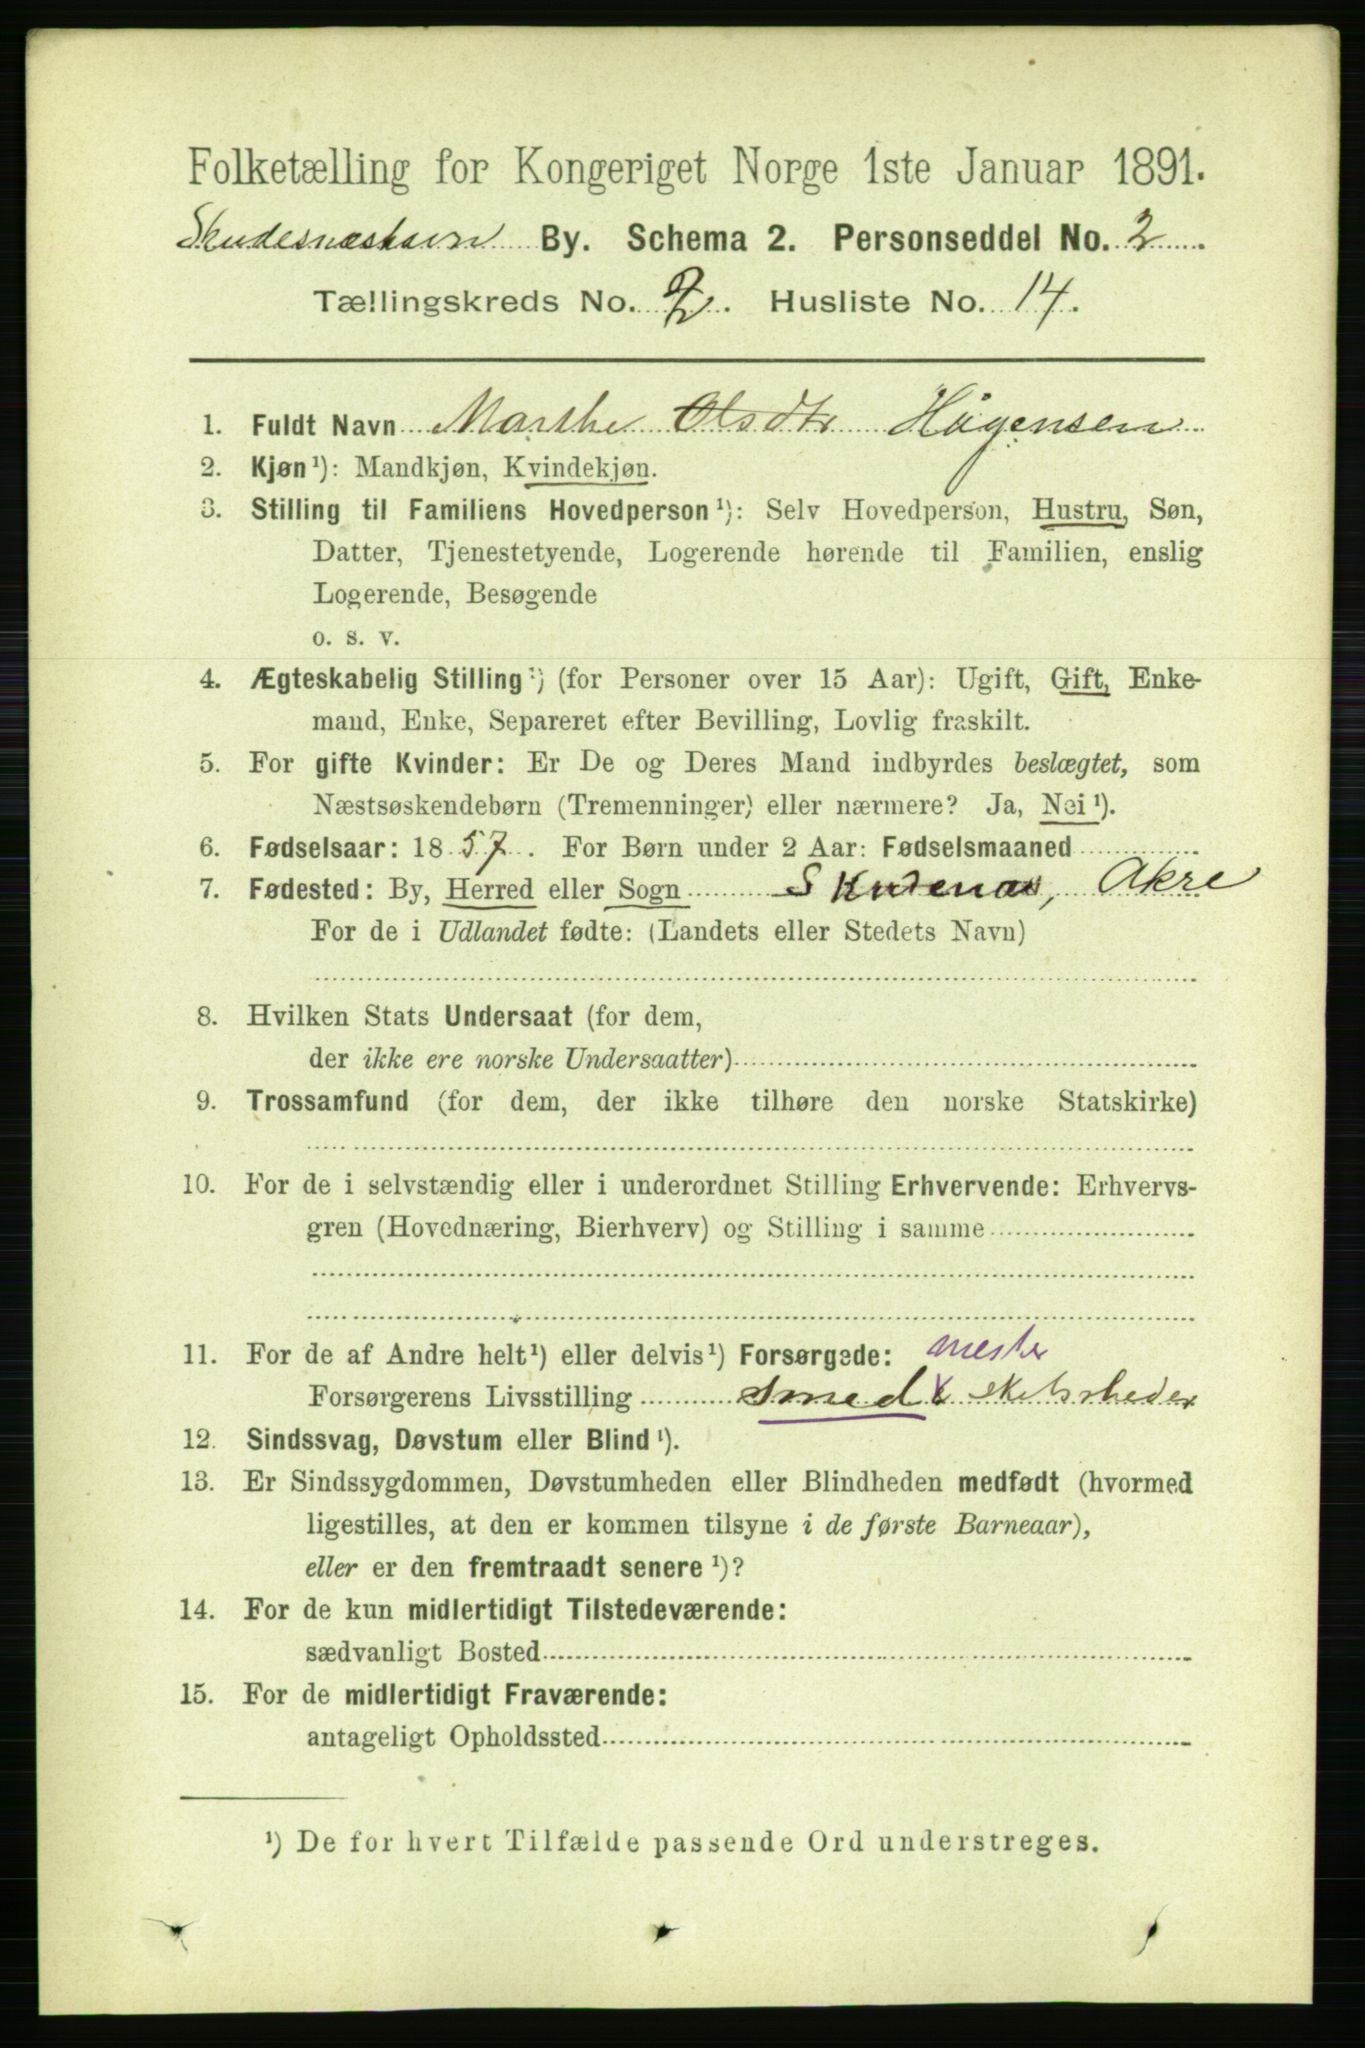 Folketælling for Kongeriget Norge 1ste Januar 1891.
Skudesnæshavn By. Schema 2. Personseddel No. 2.
Tællingskreds No. 2. Husliste No. 14.
1. Fuldt Navn Marthe Olsdtr Hågensen
2. Kjøn¹): Mandkjøn, Kvindekjøn.
3. Stilling til Familiens Hovedperson¹): Selv Hovedperson, Hustru, Søn,
Datter, Tjenestetyende, Logerende hørende til Familien, enslig
Logerende, Besøgende
o. s. v.
4. Ægteskabelig Stilling¹) (for Personer over 15 Aar): Ugift, Gift, Enke-
mand, Enke, Separeret efter Bevilling, Lovlig fraskilt.
5. For gifte Kvinder: Er De og Deres Mand indbyrdes beslægtet, som
Næstsøskendebørn (Tremenninger) eller nærmere? Ja, Nei¹).
6. Fødselsaar: 1857. For Børn under 2 Aar: Fødselsmaaned
7. Fødested: By, Herred eller Sogn Skudenæs, Akre
For de i Udlandet fødte: (Landets eller Stedets Navn)
8. Hvilken Stats Undersaat (for dem,
der ikke ere norske Undersaatter)
9. Trossamfund (for dem, der ikke tilhøre den norske Statskirke)
10. For de i selvstændig eller i underordnet Stilling Erhvervende: Erhvervs-
gren (Hovednæring, Bierhverv) og Stilling i samme
11. For de af Andre helt¹) eller delvis¹) Forsørgede: mester
Forsørgerens Livsstilling Smed
12. Sindssvag, Døvstum eller Blind¹).
13. Er Sindssygdommen, Døvstumheden eller Blindheden medfødt (hvormed
ligestilles, at den er kommen tilsyne i de første Barneaar),
eller er den fremtraadt senere¹)?
14. For de kun midlertidigt Tilstedeværende:
sædvanligt Bosted
15. For de midlertidigt Fraværende:
antageligt Opholdssted
¹) De for hvert Tilfælde passende Ord understreges.